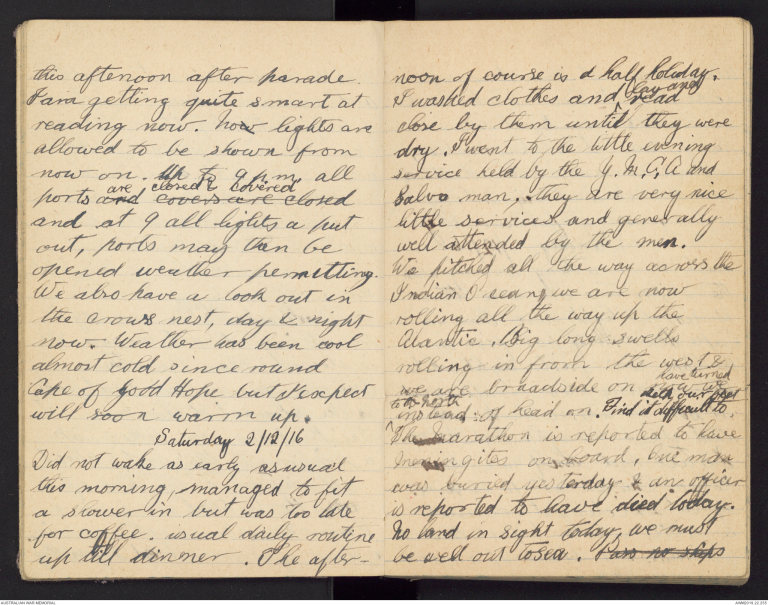 this aftenoon after parade.
I am getting quite smart at
reading now. now lights are
allowed to be shown from
now on. Up to 9 p.m. all
ports are closed & covered and covers are closed
and at 9 all lights a put
out, ports may then be
opened weather permitting.
We also have a look out in
the crows nest, day & night
now. Weather has been cool
almost cold since round
Cape of good Hope but I expect
will soon warm up.
Saturday 2/12/16
Did not wake as early, as usual
this morning, managed to fit
a shower in but was too late
for coffee. usual daily routine
up till dinner. The after-
noon of course is a half holiday.
I washed clothes and lay and read
close by them until they were
dry. I went to the little evening
service held by the Y.M.C.A and
Salvo man. they are very nice
little services and generally
well attended by the men.
We pitched all the way across the
Indian Ocean, we are now
rolling all the way up the
Atlantic. Big long swells
rolling in from the west &
we are broadside on now we have turned
to the north instead of head on. Find it difficult to
with our feet
The Marathon is reported to have
Meningites on board, one man
was buried yesterday & an officer
is reported to have died today.
No land in sight today, we must
be well out to sea. Pass no ships
AUSTRALIAN WAR MEMORIAL